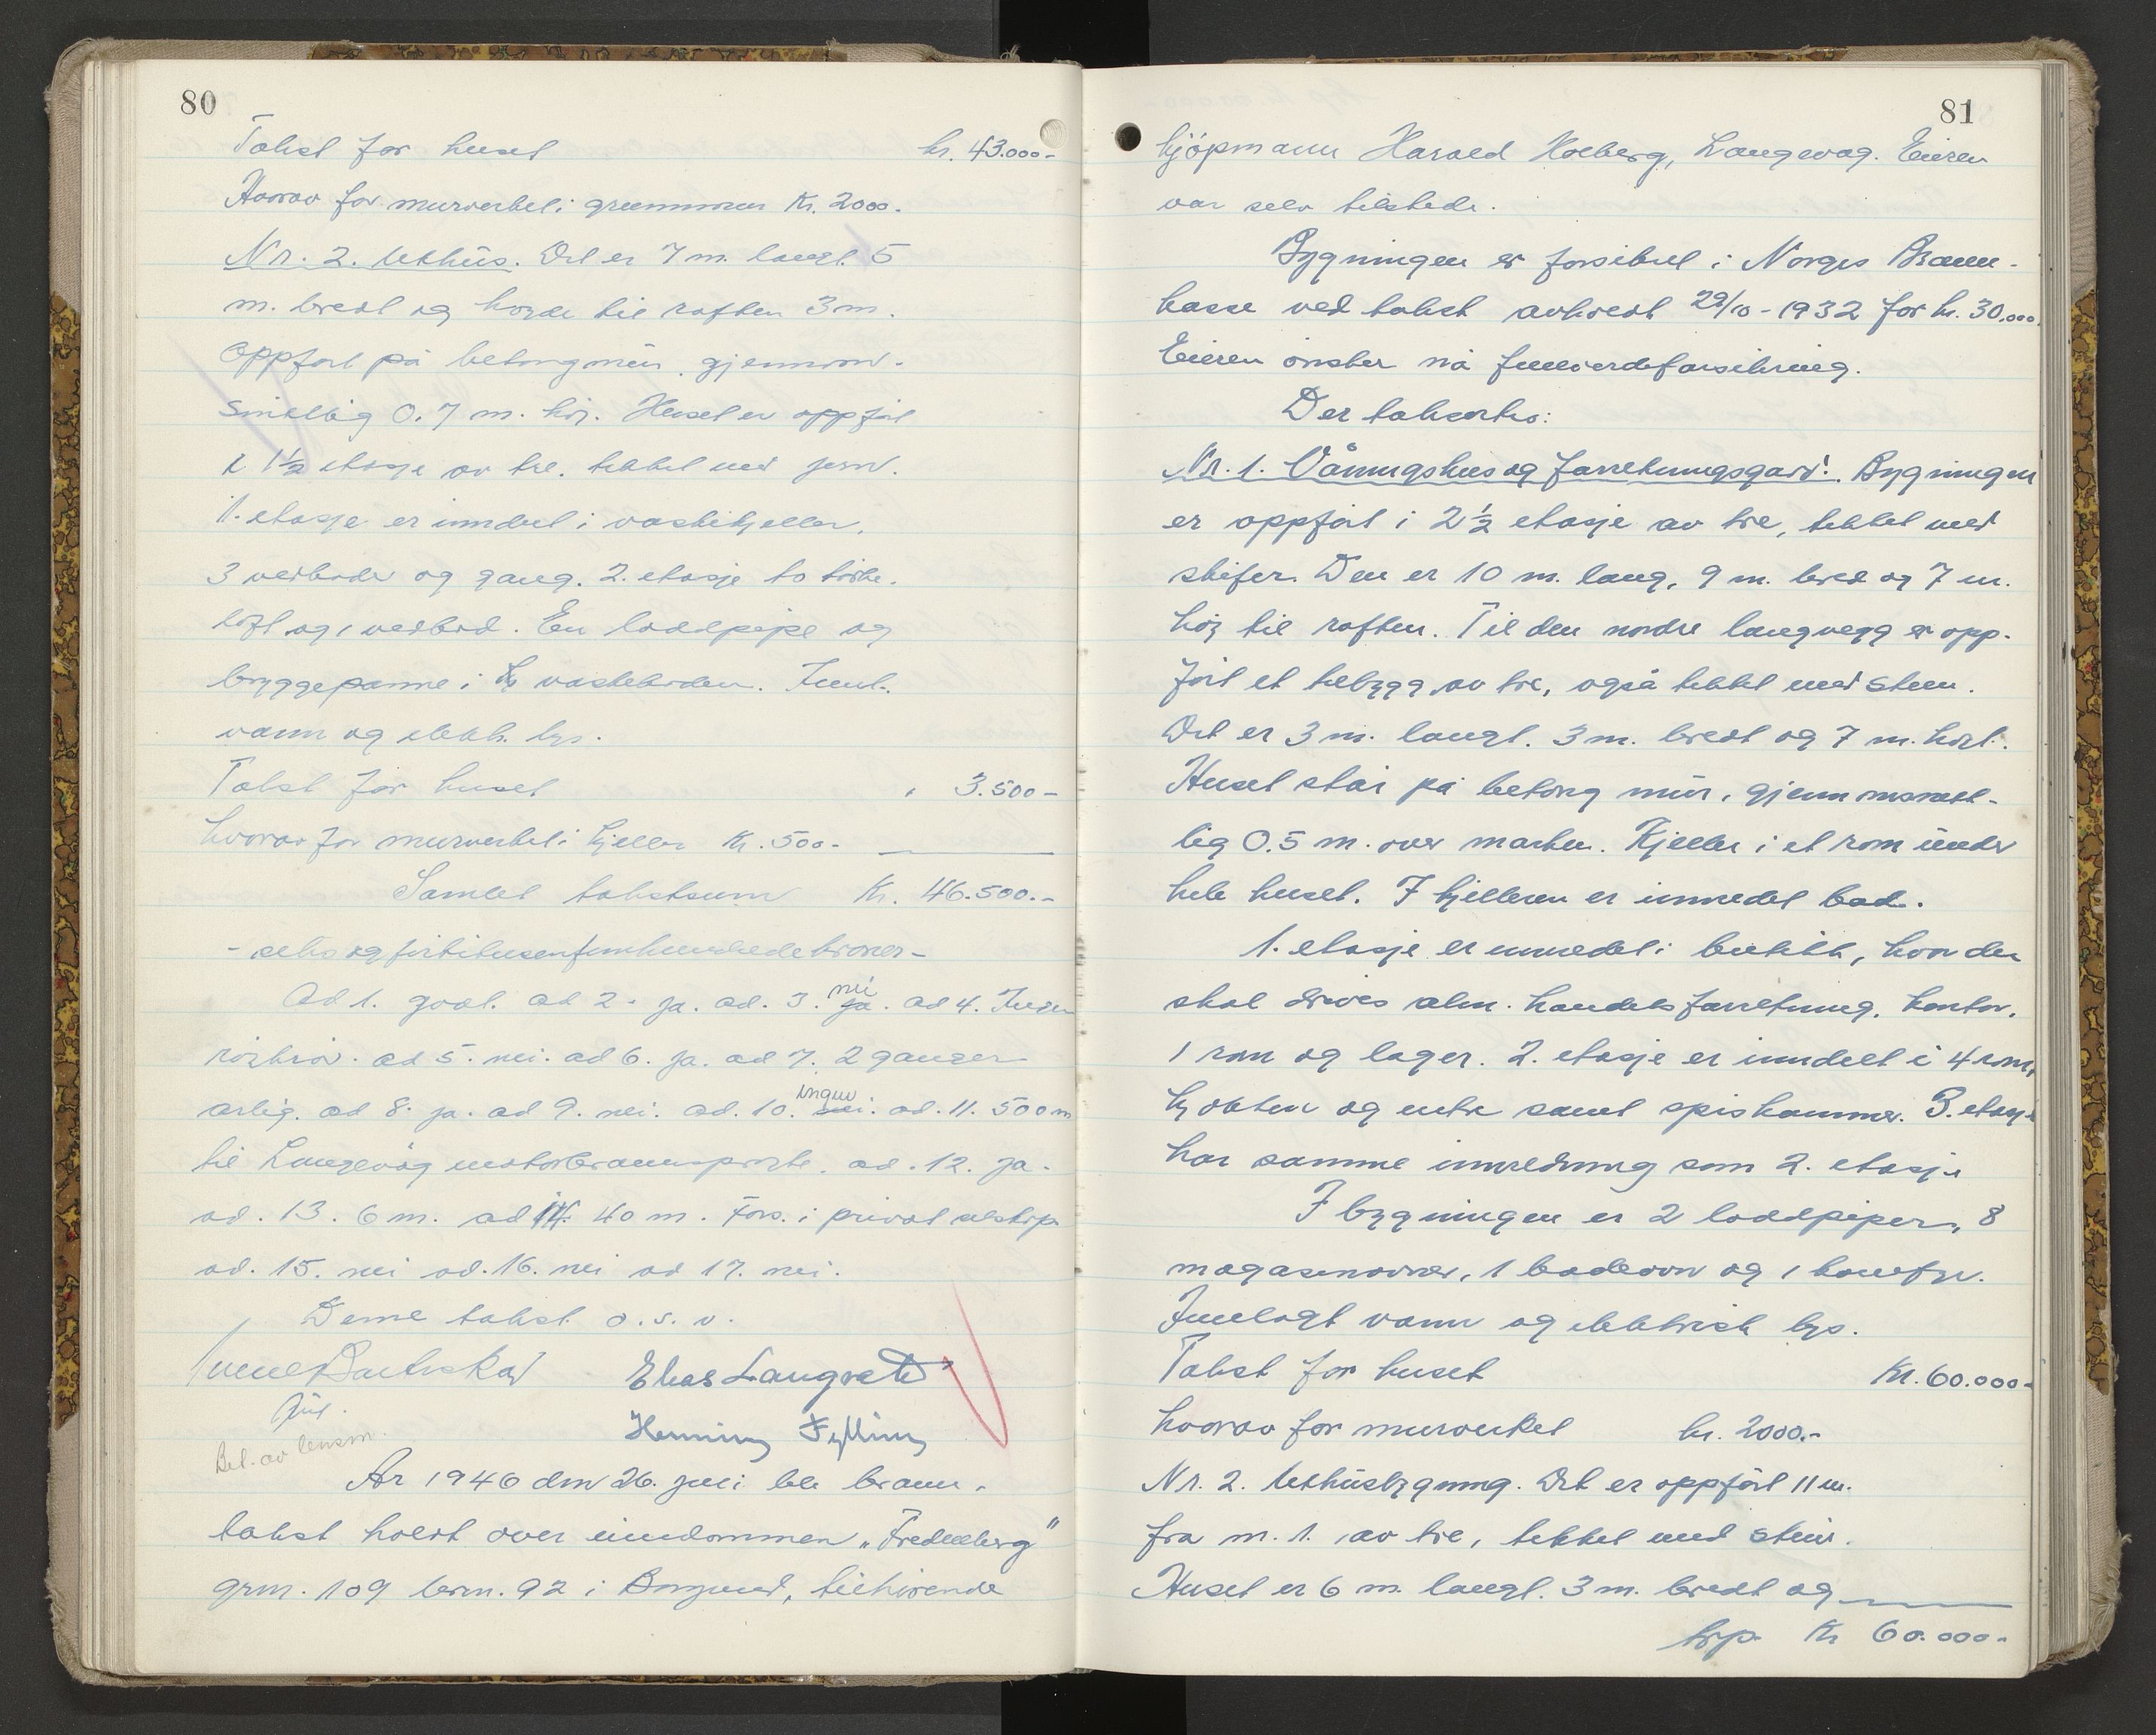 80
Takst for huset kr. 43.000-
Hvorav for murverket i grunnmuren Kr. 2000.
Nr. 2. Uthus. Det er 7 m. langt. 5
m. bredt og høyde til raften 3 m.
Oppført på betongmur, gjennom-
snittlig 0.7 m. høy. Huset er oppført
i 1½ etasje av tre. tekket med jern.
1. etasje er inndelt i vaskekjeller.
3 vedboder og gang. 2. etasje to tørke-
loft og 1 vedbod. En loddpipe og
bryggepanne i vaskeboden. Innl.
vann og elektr. lys.
Takst for huset " 3.500-
hvorav for murverket i kjeller Kr. 500-
Samlet takstsum Kr. 46.500.-
- seks og førtitusenfemhundrede kroner -
Ad 1. godt. ad 2. ja. ad. 3. ja. nei ad 4. Ingen
ad 5. nei. ad 6. ja. ad 7. 2 ganger
årlig. ad 8. ja. ad 9. nei. ad. 10. nei. ingen ad. 11. 500 m
til Langevåg motorbrannsprøyte. ad. 12. ja.
ad. 13. 6 m. ad 14. 40 m. Fors. i privat selskap
ad. 15. nei ad. 16. nei ad 17. nei.
Denne takst o.s.v.
Elias Langseth
Henning Fylling
Bet. av lensm.
År 1946 den 26. juli ble brann-
takst holdt over eiendommen "Fredheiberg"
grm. 109 brm. 92 i Borgund, tilhørende
81
kjøpmann Harald Holberg, Langevåg. Eieren
var selv tilstede.
Bygningen er forsikret i Norges Brann-
kasse ved takst avholdt 29/10 - 1932 for kr. 30.000.
Eieren ønsker nå fullverdiforsikring.
Der takseres:
Nr. 1. Våningshus og forretningsgård. Bygningen
er oppført i 2½ etasje av tre, tekket med
skifer. Den er 10 m. lang, 9 m. bred og 7 m.
høy til raften. Til den nordre langvegg er opp-
ført et tilbygg av tre, også tekket med sten.
Det er 3 m. langt. 3 m. bredt og 7 m. høyt.
Huset står på betong mur, gjennomsnitt-
lig 0.5 m. over marken. Kjeller i et rom under
hele huset. I kjelleren er innredet bad.
1. etasje er innredet i butikk, hvor der
skal drives alm. handelsforretning. kontor,
1 rom og lager. 2. etasje er inndelt i 4 rom,
kjøkken og entre samt spiskammer. 3. etasje
har samme innredning som 2. etasje
I bygningen er 2 loddpiper, 8
magasinovner, 1 badeovn og 1 komfyr.
Innlagt vann og elektrisk lys.
Takst for huset Kr. 60.000-
hvorav for murverket kr. 2000.-
Nr. 2. Uthusbygning. Det er oppført 11 m.
fra nr. 1. av tre, tekket med sten.
Huset er 6 m. langt. 3 m. bredt og
trsp. Kr 60.000-